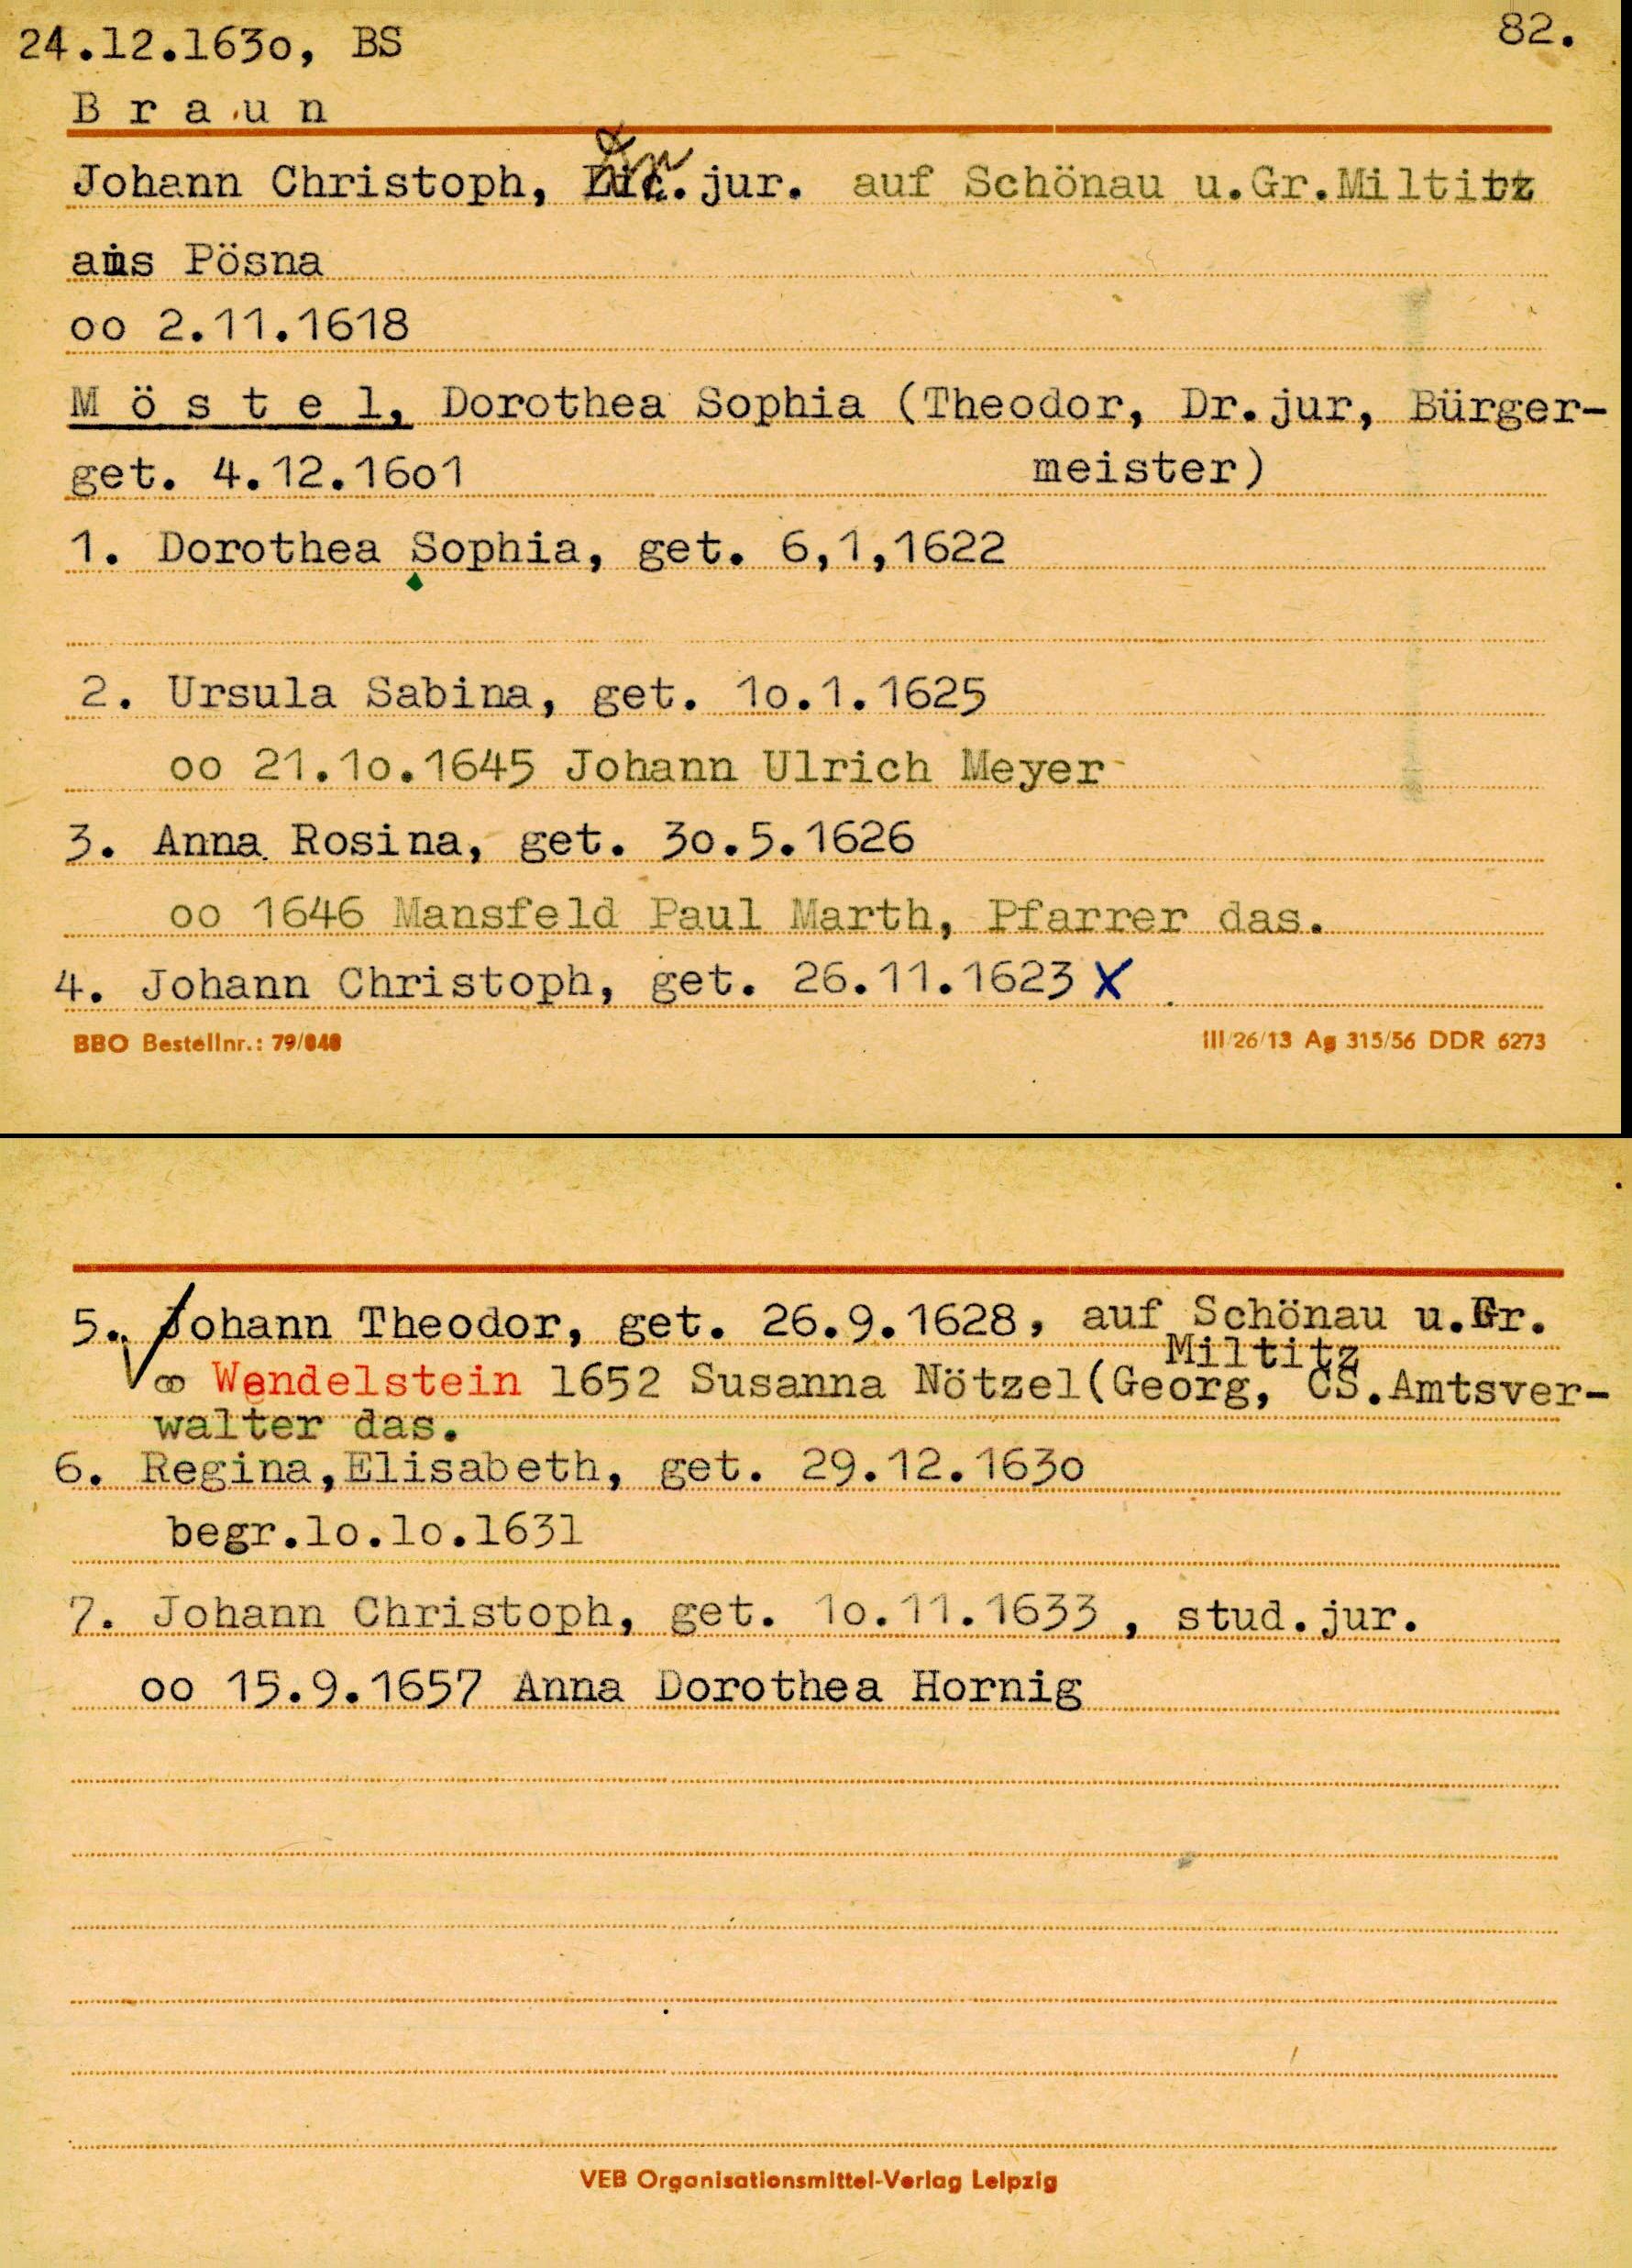 24.12.163o, BS
82.
B r a u n
Johann Christoph, Dr. jur. auf Schönau u.Gr.Miltitz
aus Pösna
oo 2.11.1618
M ö s t e l, Dorothea Sophia (Theodor, Dr.jur, Bürger-
get. 4.12.16o1 meister)
1. Dorothea Sophia, get. 6,1,1622
2. Ursula Sabina, get. 1o.1.1625
oo 21.1o.1645 Johann Ulrich Meyer
3. Anna Rosina, get. 3o.5.1626
oo 1646 Mansfeld Paul Marth, Pfarrer das.
4. Johann Christoph, get. 26.11.1623 X
BBO Bestellnr.: 79/848
III/26/13 Ag 315/56 DDR 6273
5. Johann Theodor, get. 26.9.1628, auf Schönau u.Gr.
Miltitz
∞ Wendelstein 1652 Susanna Nötzel(Georg, CS.Amtsver-
walter das.
6. Regina,Elisabeth, get. 29.12.163o
begr.lo.lo.1631
7. Johann Christoph, get. 1o.11.1633, stud.jur.
oo 15.9.1657 Anna Dorothea Hornig
VEB Organisationsmittel-Verlag Leipzig